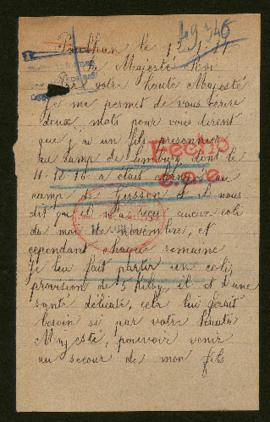 49346
le
Majesté Roi
Par votre haute Majesté
je me permet de vous écrire
deux mots pour vous dirent
que j'ai un fils prisonnier
au camp de Limburg dont le
11-12-16 a était
camp de Giessen et il nous
dit qu'il n'a reçu aucun colis
du mois de Novembre, et
cependant chaque semaine
je leu fait partir un coli,
provision de 5 kilog, il et d'une
santé délicate, cela lui ferait
besoin si par votre haute
Majesté, pouvoir venir
au secour de mon fils
Hecho